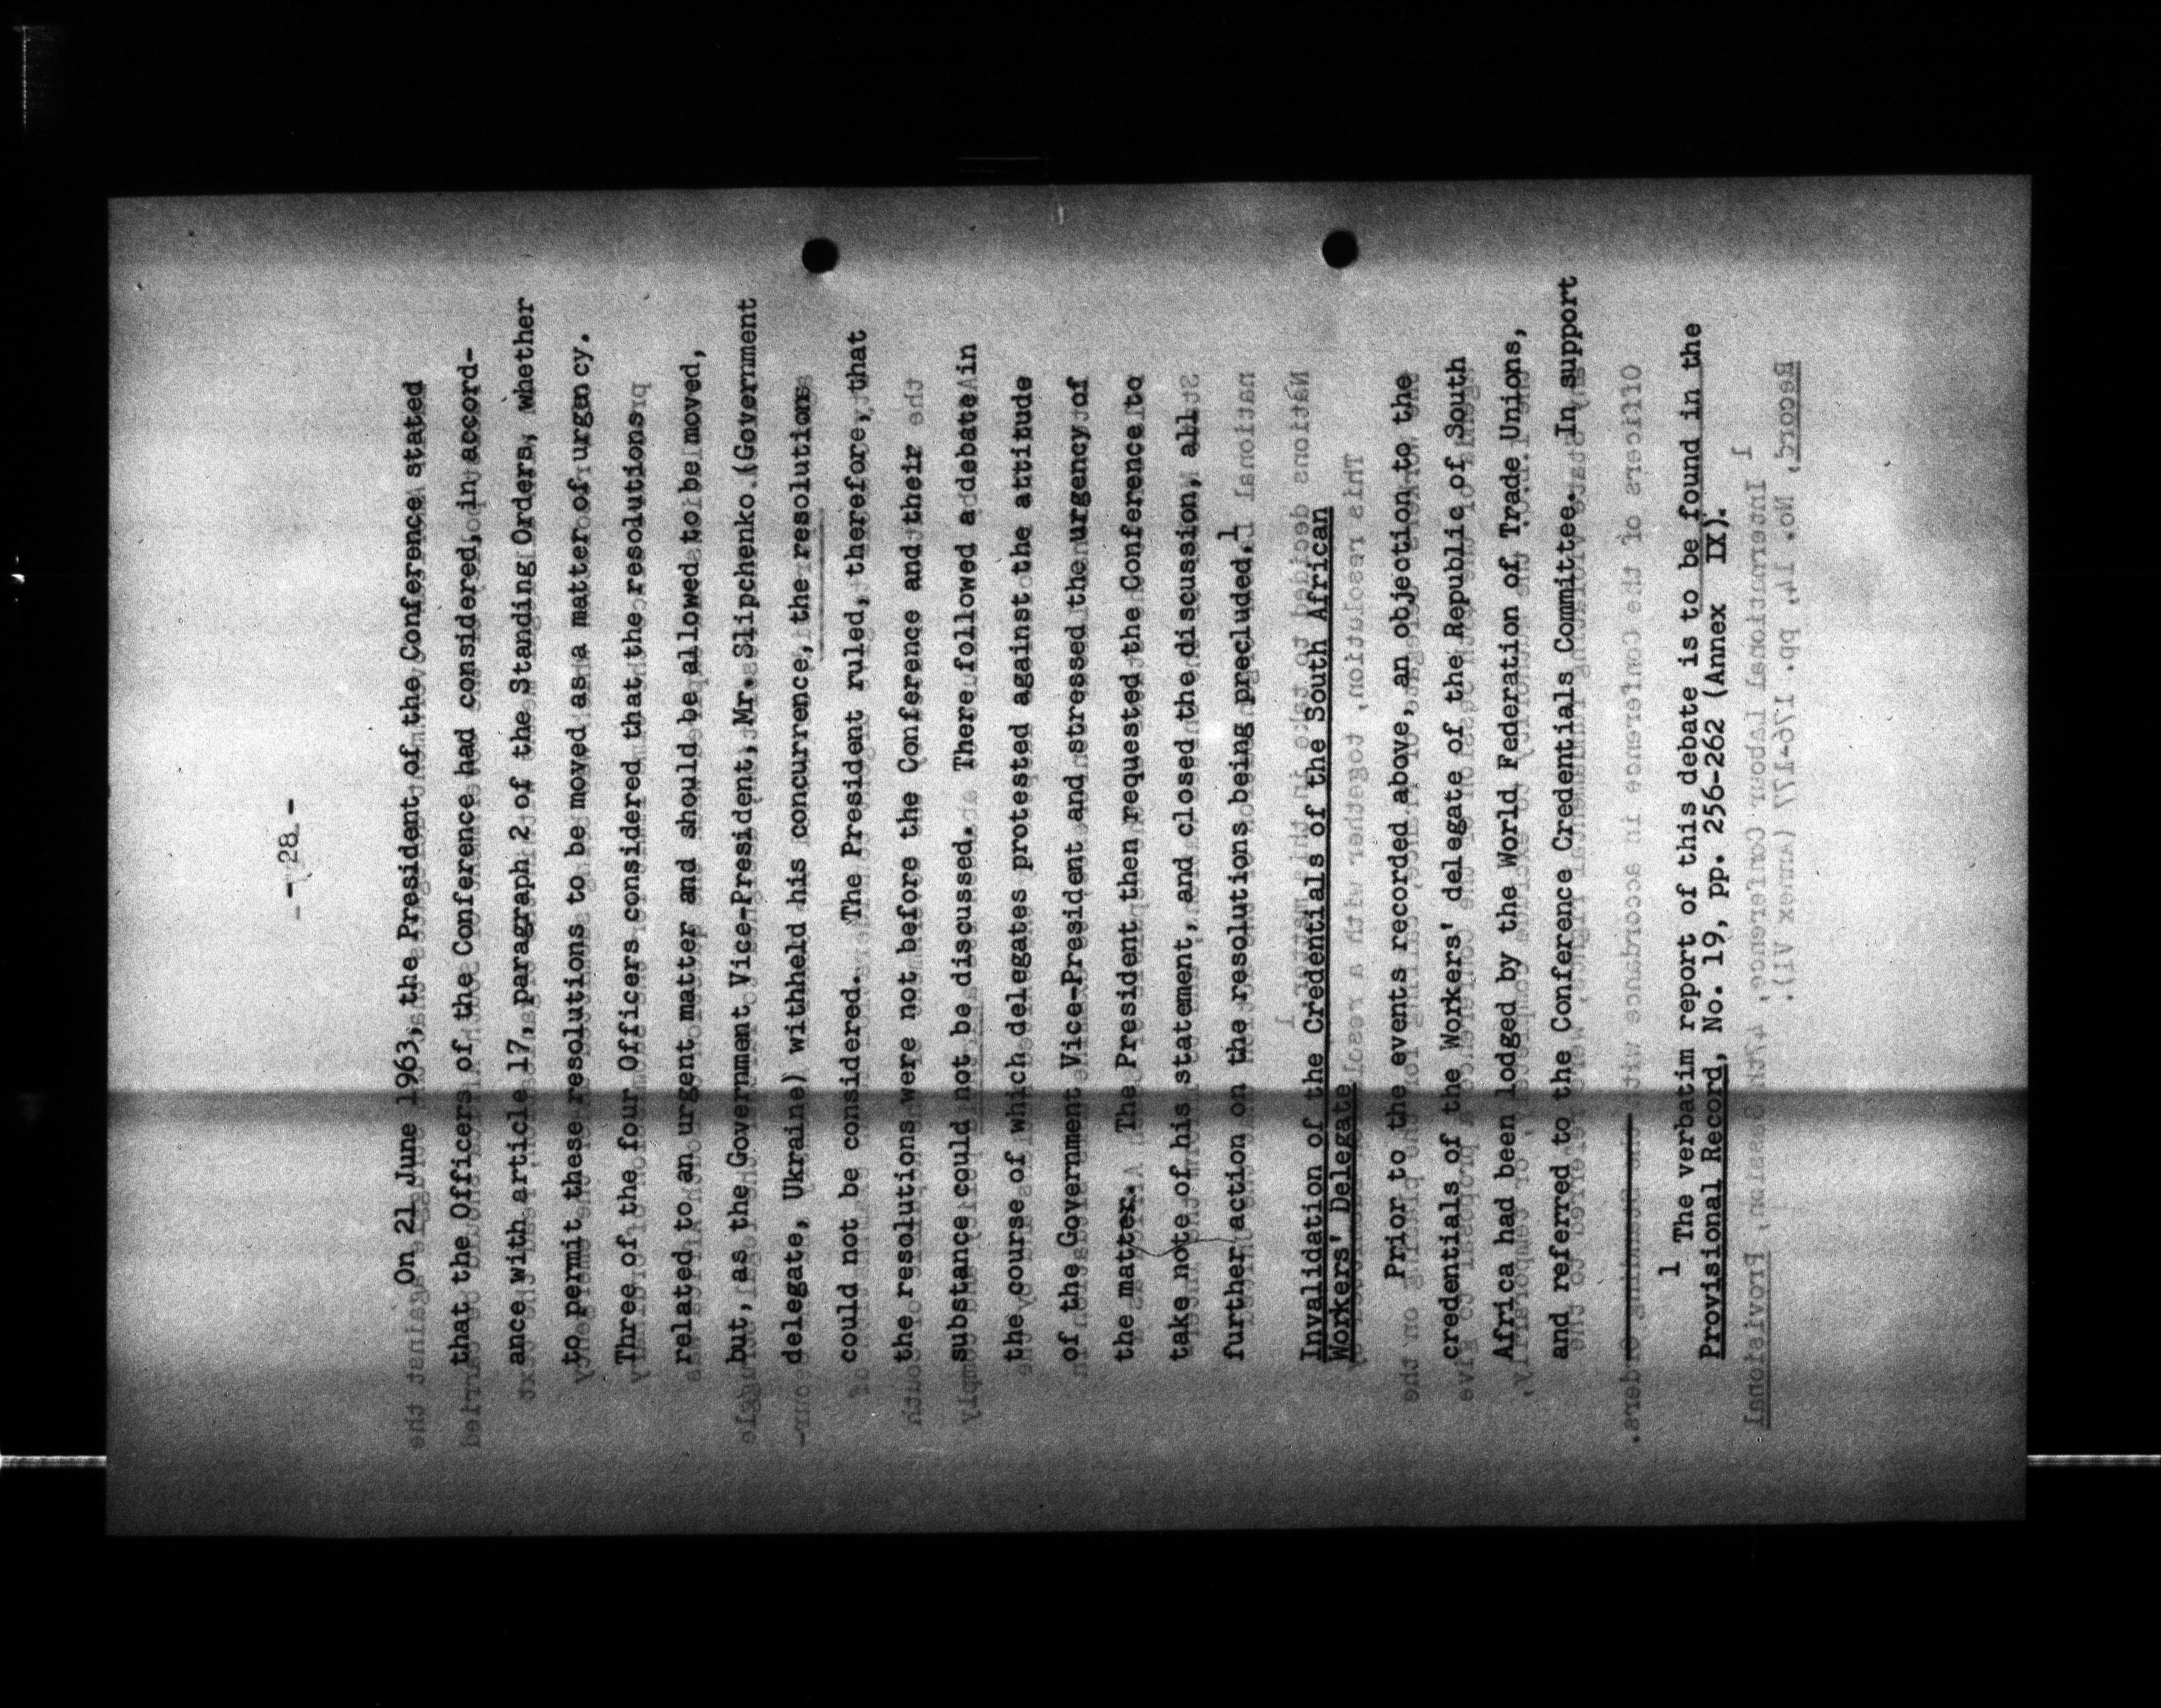 - 28 -
On 21 June 1963, the President of the Conference stated
that the Officers of the Conference had considered, in accord-
ance with article 17, paragraph 2 of the Standing Orders, whether
to permit these resolutions to be moved as a matter of urgency.
Three of the four Officers considered that the resolutions
related to an urgent matter and should be allowed to be moved,
but, as the Government Vice-President, Mr. Slipchenko (Government
delegate, Ukraine) withheld his concurrence, the resolutions
could not be considered. The President ruled, therefore, that
the resolutions were not before the Conference and their
substance could not be discussed. There followed a debate in
the course of which delegates protested against the attitude
of the Government Vice-President and stressed the urgency of
the matter. The President then requested the Conference to
take note of his statement, and closed the discussion, all
further action on the resolutions being precluded.1
Invalidation of the Credentials of the South African
Workers' Delegate
Prior to the events recorded above, an objection to the
credentials of the Workers' delegate of the Republic of South
Africa had been lodged by the World Federation of Trade Unions,
and referred to the Conference Credentials Committee. In support
1 The verbatim report of this debate is to be found in the
Provisional Record, No. 19, pp. 256-262 (Annex IX).